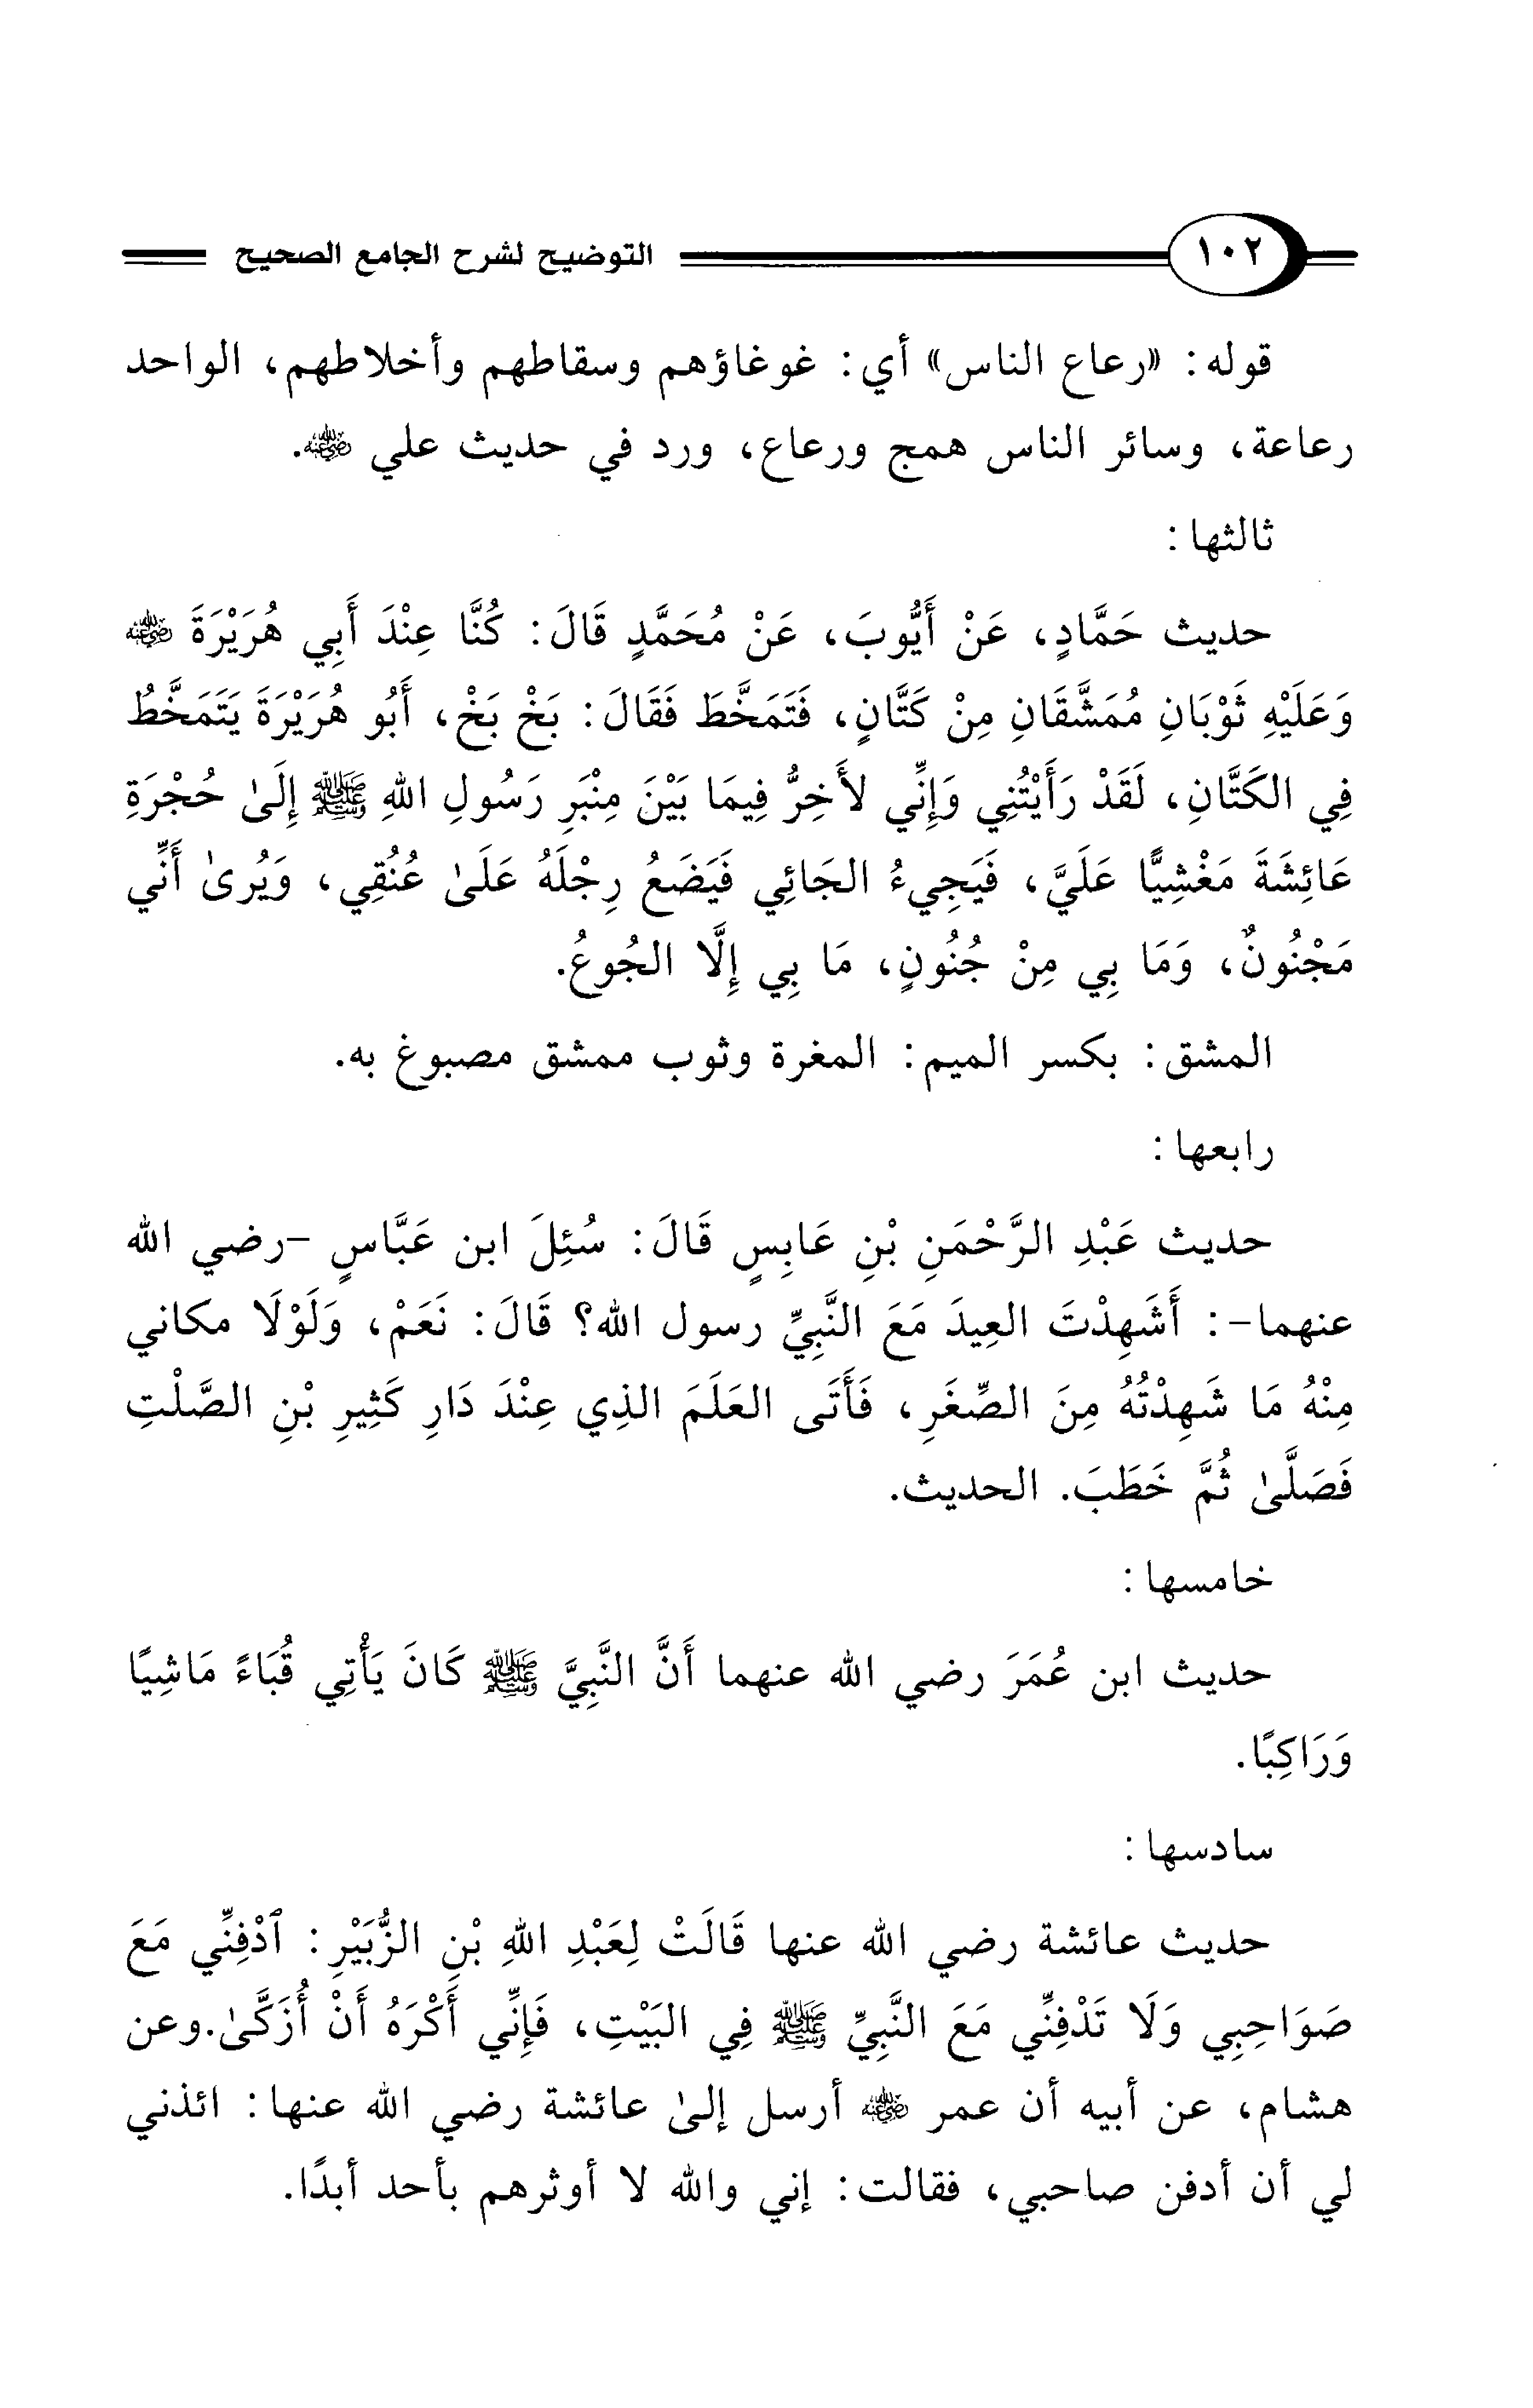 ١٠٢ التوضيح لشرح الجامع الصحيح
قوله: «رعاع الناس» أي: غوغاؤهم وسقاطهم وأخلاطهم، الواحد
رعاعة، وسائر الناس همج ورعاع، ورد في حديث علي رضي الله عنه.
ثالثها:
حديث حَمَّادٍ، عَنْ أَيُّوبَ، عَنْ مُحَمَّدٍ قَالَ: كُنَّا عِنْدَ أَبِي هُرَيْرَةَ رضي الله عنه
وَعَلَيْهِ ثَوْبَانِ مُمَشَّقَانِ مِنْ كَتَّانٍ، فَتَمَخَّطَ فَقَالَ: بَخْ بَخْ، أَبُو هُرَيْرَةَ يَتَمَخَّطُ
فِي الكَتَّانِ، لَقَدْ رَأَيْتُنِي وَإِنِّي لأَخِرُّ فِيمَا بَيْنَ مِنْبَرِ رَسُولِ اللهِ ﷺ إِلَىٰ حُجْرَةِ
عَائِشَةَ مَغْشِيًّا عَلَيَّ، فَيَجِيءُ الجَائِي فَيَضَعُ رِجْلَهُ عَلَىٰ عُنُقِي، وَيُرىٰ أَنِّي
مَجْنُونٌ، وَمَا بِي مِنْ جُنُونٍ، مَا بِي إِلَّا الجُوعُ.
المشق: بكسر الميم: المغرة وثوب ممشق مصبوغ به.
رابعها:
حديث عَبْدِ الرَّحْمَنِ بْنِ عَابِسٍ قَالَ: سُئِلَ ابن عَبَّاسٍ -رضي الله
عنهما-: أَشَهِدْتَ العِيدَ مَعَ النَّبِيِّ رسول الله؟ قَالَ: نَعَمْ، وَلَوْلَا مكاني
مِنْهُ مَا شَهِدْتُهُ مِنَ الصِّغَرِ، فَأَتَى العَلَمَ الذِي عِنْدَ دَارِ كَثِيرِ بْنِ الصَّلْتِ
فَصَلَّىٰ ثُمَّ خَطَبَ. الحديث.
خامسها:
حديث ابن عُمَرَ رضي الله عنهما أَنَّ النَّبِيَّ ﷺ كَانَ يَأْتِي قُبَاءً مَاشِيًا
وَرَاكِبًا.
سادسها:
حديث عائشة رضي الله عنها قَالَتْ لِعَبْدِ اللهِ بْنِ الزُّبَيْرِ: ٱدْفِنِّي مَعَ
صَوَاحِبِي وَلَا تَدْفِنِّي مَعَ النَّبِيِّ ﷺ فِي البَيْتِ، فَإِنِّي أَكْرَهُ أَنْ أُزَكَّىٰ.وعن
هشام، عن أبيه أن عمر رضي الله عنه أرسل إلىٰ عائشة رضي الله عنها: ائذني
لي أن أدفن صاحبي، فقالت: إني والله لا أوثرهم بأحد أبدًا.